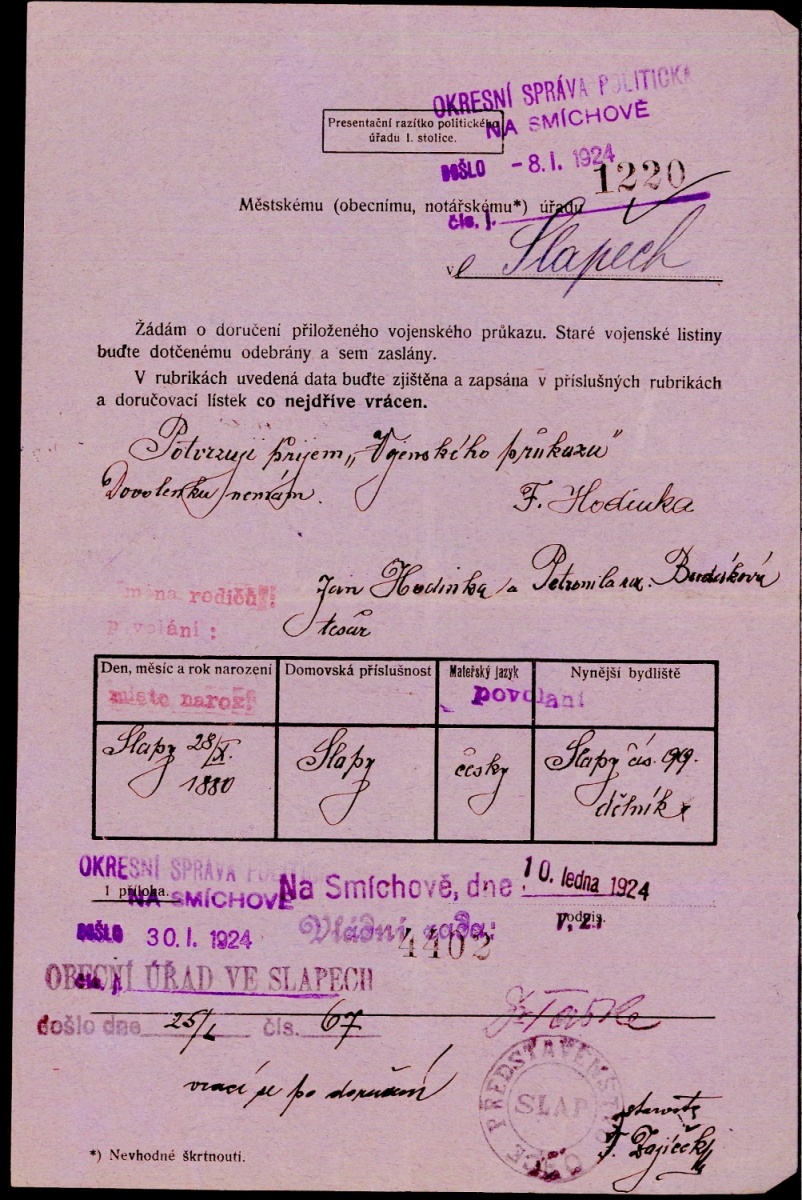 OKRESNÍ SPRÁVA POLITICKÁ
NA SMÍCHOVĚ
Presentační razítko politického
úřadu I. stolice.
DOŠLO -8. I. 1924
1220
Městskému (obecnímu, notářskému*) úřadu
čís. j.
ve Slapech
Žádám o doručení přiloženého vojenského průkazu. Staré vojenské listiny
buďte dotčenému odebrány a sem zaslány.
V rubrikách uvedená data buďte zjištěna a zapsána v příslušných rubrikách
a doručovací lístek co nejdříve vrácen.
Potvrzuji příjem „Vojenského průkazu"
Dovolenku nemám.
F. Hodinka
jména rodičů:
Jan Hodinka a Petronila roz.
povolání:
tesař
Den, měsíc a rok narození Domovská příslušnost Mateřský jazyk Nynější bydliště
místo naroz. povolání
Slapy 28/X. 1880 Slapy česky Slapy čís. dělník
OKRESNÍ SPRÁVA POLITICKÁ
1 příloha.
NA SMÍCHOVĚ
Na Smíchově, dne 10. ledna 1924
podpis.
DOŠLO 30. I. 1924
Vládní rada: v. z.
4402
čís. j.
OBECNÍ ÚŘAD VE SLAPECH
došlo dne 25/I čís. 67
vrací se po doručení
PŘEDSTAVENSTVO OBCE
SLAP
starosta
F. Zajíček
*) Nevhodné škrtnouti.